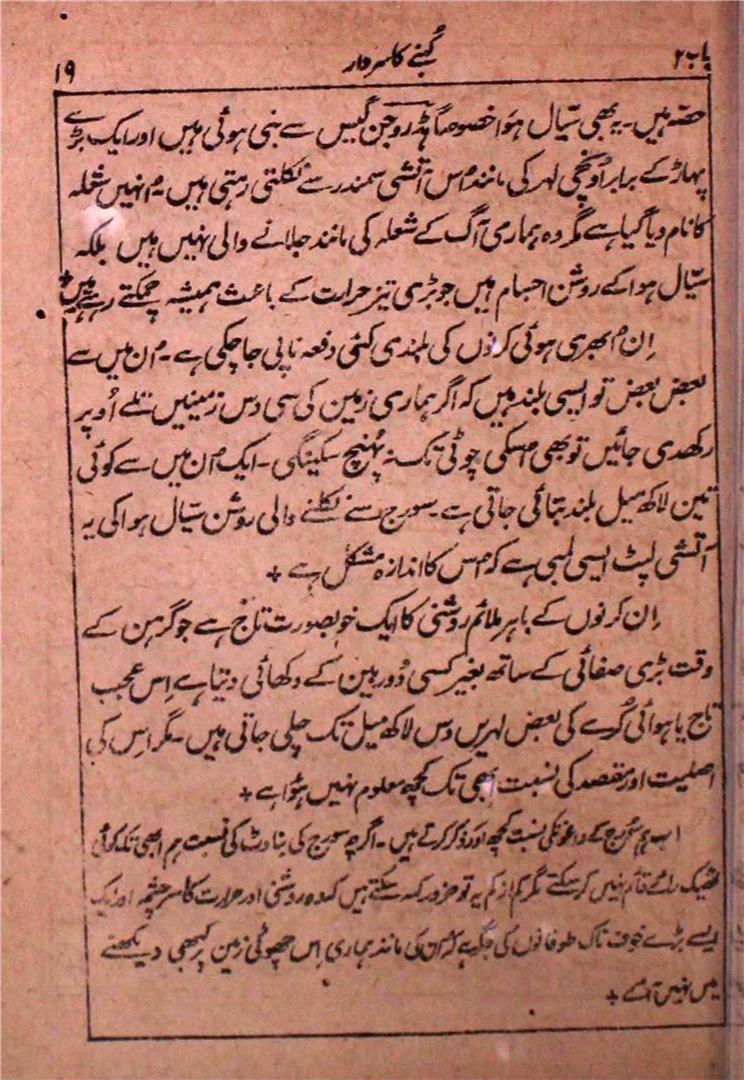 باب ۲
کُنبے کا سردار
۱۹
حصّہ ہیں۔ یہ بھی سیّال ہوا خصوصاً ہڈروجن گیس سے بنی ہوئی ہیں اور ایک بڑے
پہاڑ کے برابر اُونچی لہر کی مانند اُس آتشی سمندر سے نکلتی رہتی ہیں۔ اُنہیں شعلہ
کا نام دیا گیا ہے مگر وہ ہماری آگ کے شعلہ کی مانند جلانے والی نہیں ہیں بلکہ
سیّال ہوا کے روشن اجسام ہیں جو بڑی تیز حرارت کے باعث ہمیشہ چمکتے رہتے ہیں+
اِن اُبھری ہوئی کرنوں کی بلندی کئی دفعہ ناپی جا چکی ہے۔ اُن میں سے
بعض بعض تو ایسی بلند ہیں کہ اگر ہماری زمین کی سی دس زمینیں تلے اُوپر
رکھدی جائیں تو بھی اُسکی چوٹی تک نہ پہُنچ سکینگی۔ ایک اُن میں سے کوئی
تین لاکھ میل بلند بتائی جاتی ہے۔ سورج سے نکلنے والی روشن سیّال ہوا کی یہ
آتشی لپٹ ایسی لمبی ہے کہ اُس کا اندازہ مشکل ہے +
اِن کرنوں کے باہر ملائم روشنی کا ایک خوبصورت تاج ہے جو گرہن کے
وقت بڑی صفائی کے ساتھ بغیر کسی دُوربین کے دکھائی دیتا ہے اِس عجیب
تاج یا ہوائی کُرے کی بعض لہریں دس لاکھ میل تک چلی جاتی ہیں۔ مگر اِس کی
اصلیت اور مقصد کی نسبت ابھی تک کچھ معلوم نہیں ہؤا ہے +
اب ہم سُورج کے داغونکی نسبت کچھ اور ذکر کرتے ہیں۔ اگرچہ سورج کی بناوٹ کی نسبت ہم ابھی تک کوئی
ٹھیک رائے قائم نہیں کر سکتے مگر کم از کم یہ تو ضرور کہہ سکتے ہیں کہ وہ روشنی اور حرارت کا سرچشمہ اور ایک
ایسے بڑے خوف ناک طوفانوں کی جگہ ہے کہ اُن کی مانند ہماری اِس چھوٹی زمین پر کبھی دیکھنے
میں نہیں آئے +